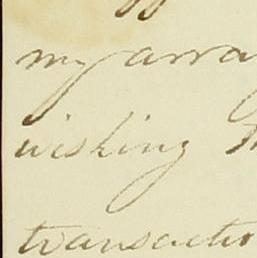 my arra
wishing
transactio